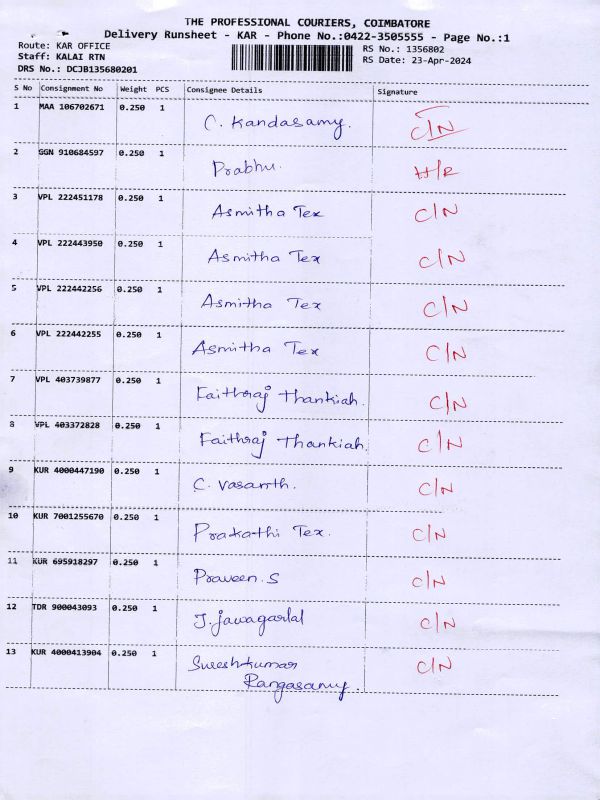 THE PROFESSIONAL COURIERS, COIMBATORE
Delivery Runsheet - KAR - Phone No.:0422-3505555 - Page No.:1
Route: KAR OFFICE
RS No.: 1356802
Staff: KALAI RTN
RS Date: 23-Apr-2024
DRS No.: DCJB135680201
S No Consignment No Weight PCS Consignee Details Signature
1 MAA 106702671 0.250 1 C. Kandasamy. C/N
2 GGN 910684597 0.250 1 Prabhu. H/R
3 VPL 222451178 0.250 1 Asmitha Tex C/N
4 VPL 222443950 0.250 1 Asmitha Tex C/N
5 VPL 222442256 0.250 1 Asmitha Tex C/N
6 VPL 222442255 0.250 1 Asmitha Tex C/N
7 VPL 403739877 0.250 1 Faithraj Thankiah. C/N
8 VPL 403372828 0.250 1 Faithraj Thankiah. C/N
9 KUR 4000447190 0.250 1 C. Vasanth. C/N
10 KUR 7001255670 0.250 1 Prakathi Tex. C/N
11 KUR 695918297 0.250 1 Praveen. S C/N
12 TDR 900043093 0.250 1 J. Jawagarlal C/N
13 KUR 4000413904 0.250 1 Sureshkumar C/N
Rangasamy.